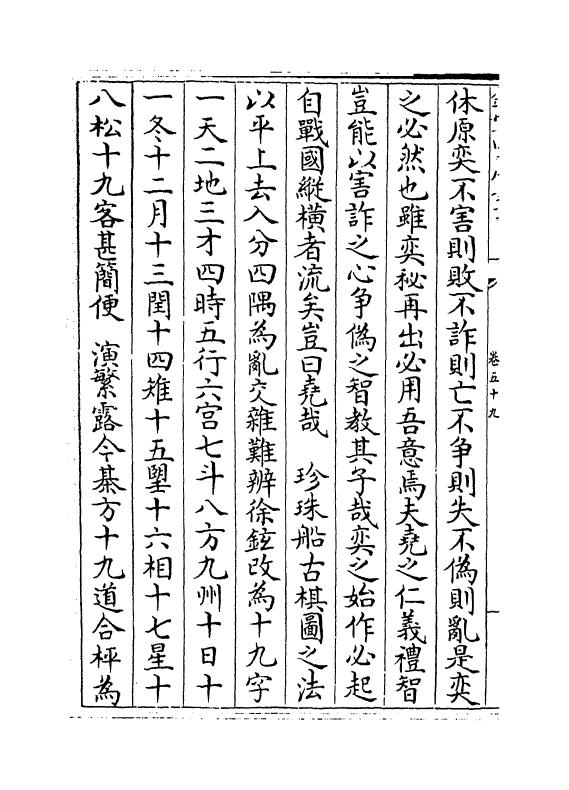 休原奕不害則敗不詐則亡不争則失不偽則亂是奕
之必然也雖奕秘再出必用吾意焉夫堯之仁義禮智
豈能以害詐之心争偽之智教其子哉奕之始作必起
自戰國縱横者流矣豈曰堯哉　珍珠船古棋圖之法
以平上去入分四隅為亂交雜難辨徐鉉改為十九字
一天二地三才四時五行六宫七斗八方九州十日十
一冬十二月十三閏十四雉十五朢十六相十七星十
八松十九客甚簡便　演繁露今棊方十九道合枰為
卷五十九